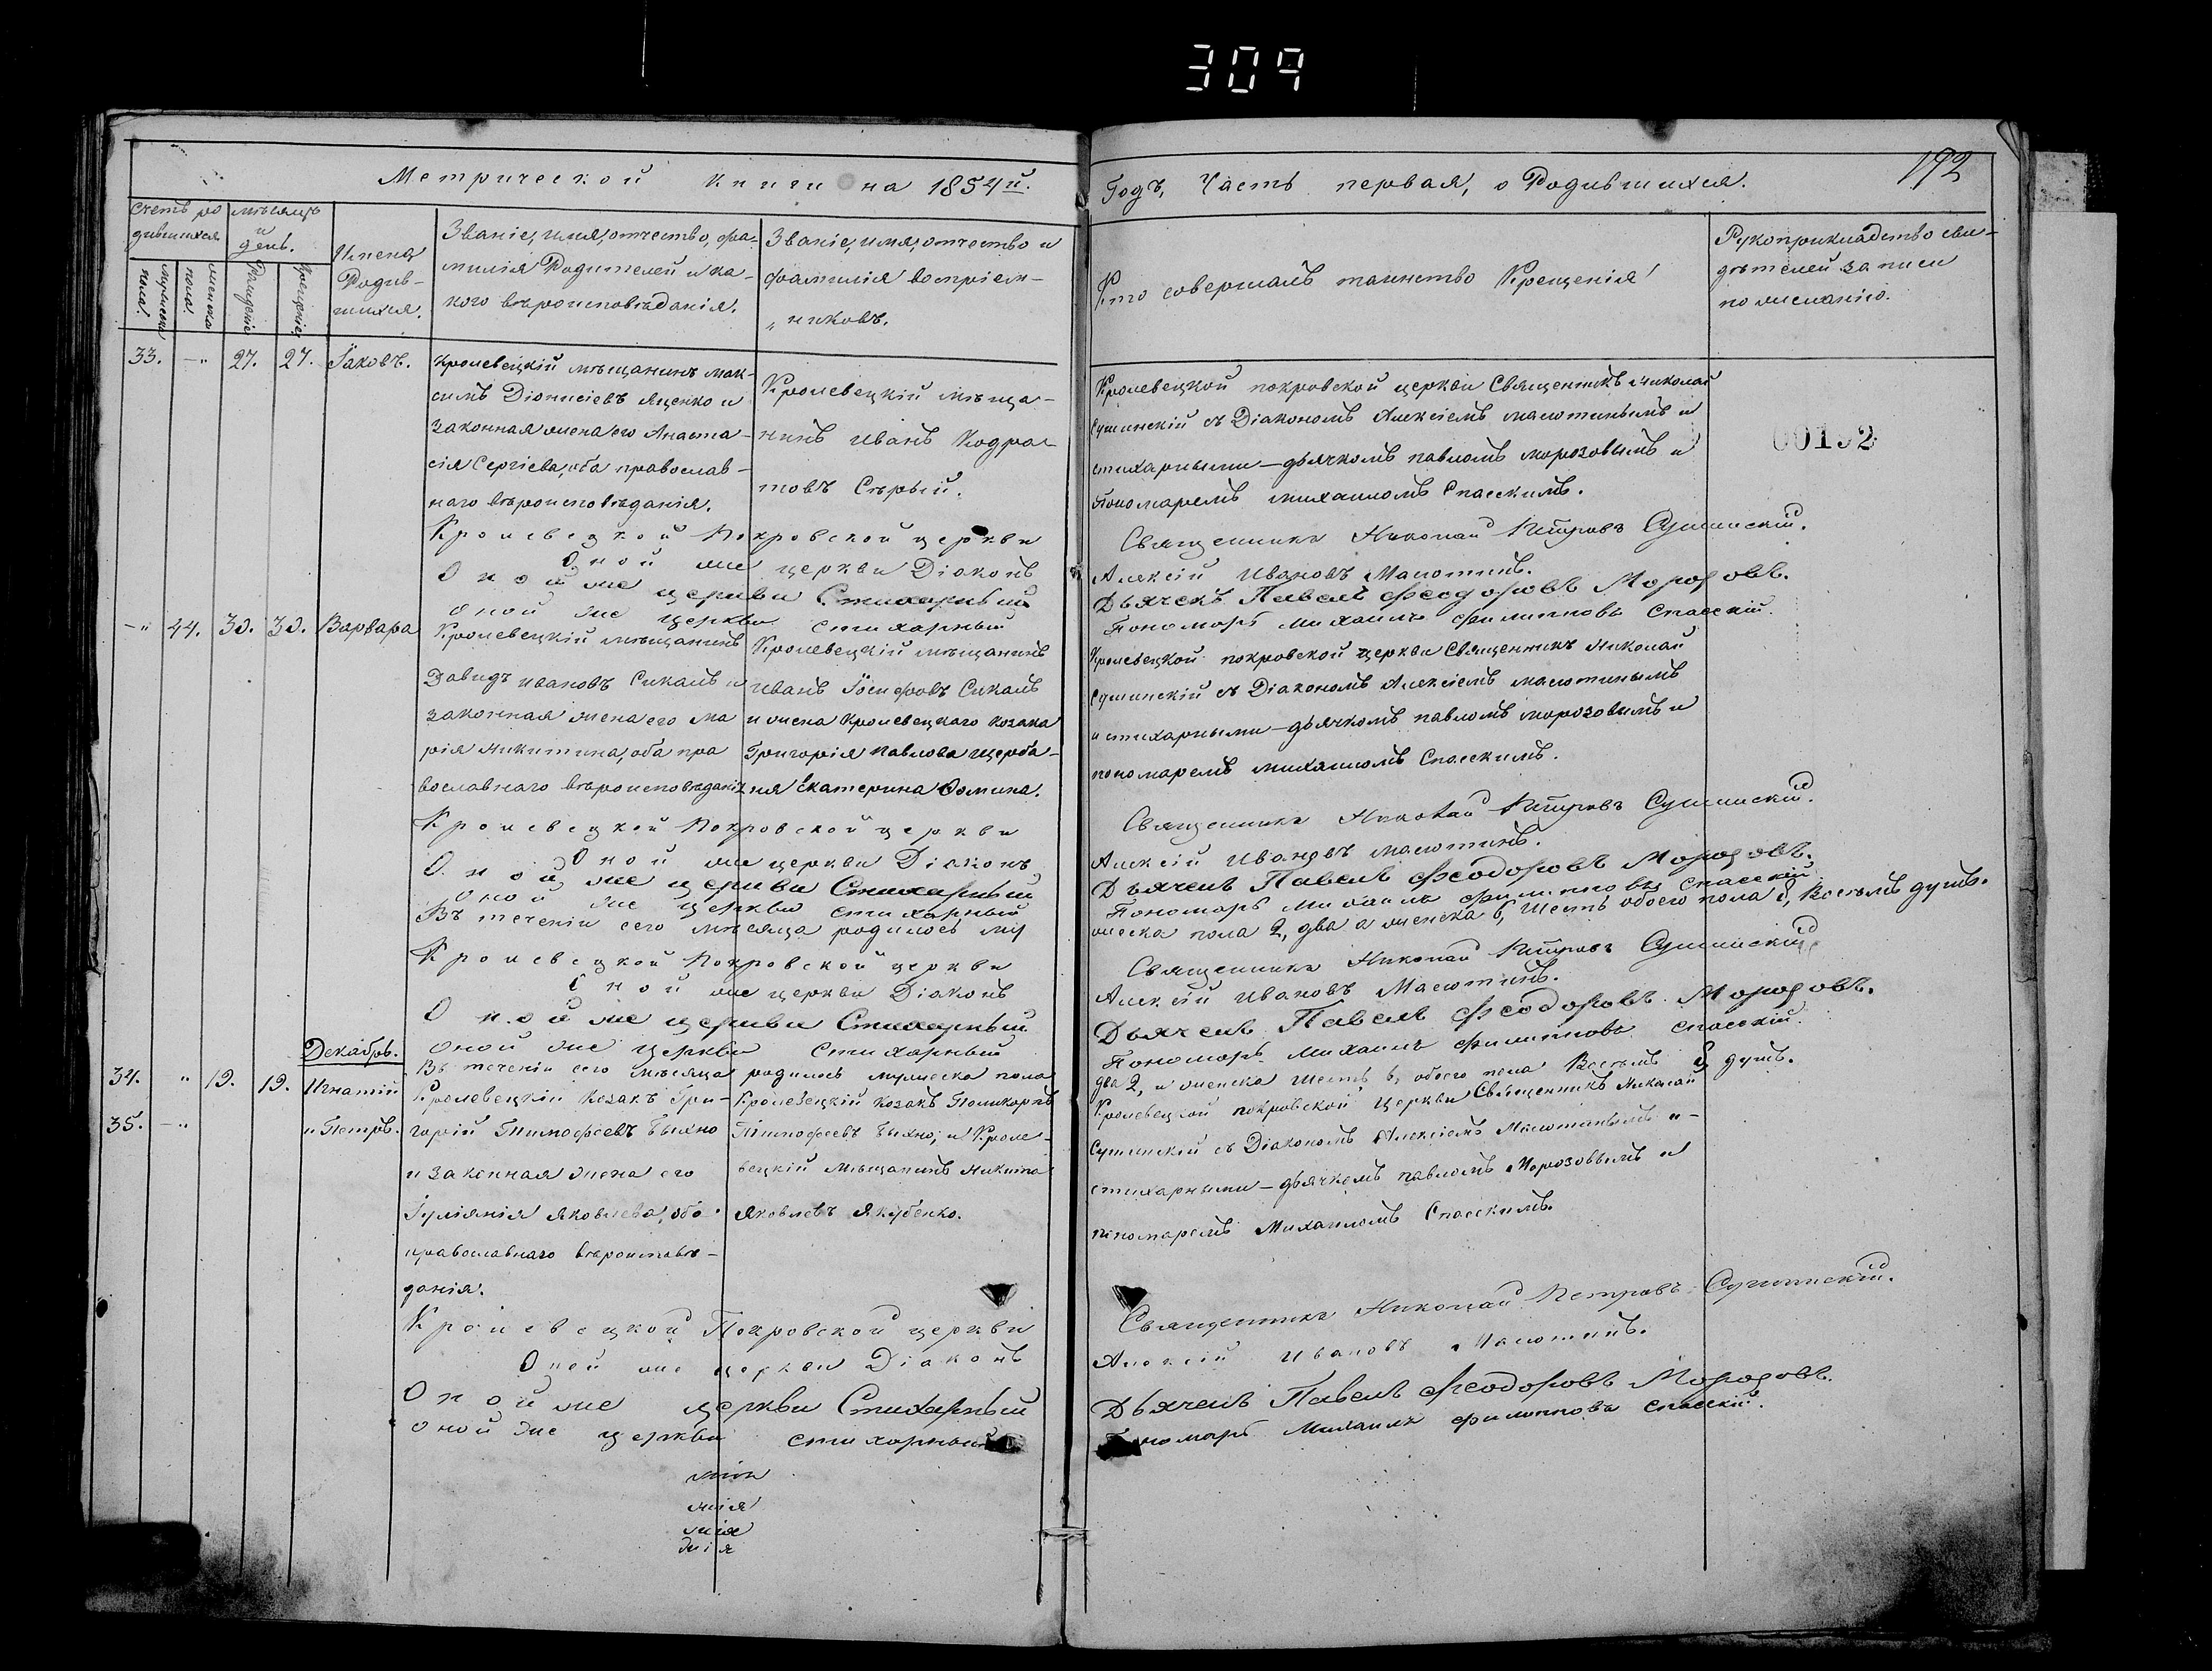 309
Метрической книги на 1854й.
Счетъ ро
дившихся
мѣсяцъ
и
день.
мужеска
пола.
женска
пола.
Рожденіе
Крещеніе
Имена
Родив-
шихся.
Званіе, имя, отчество, фа-
милія Родителей и ка-
кого вѣроисповѣданія.
Званіе, имя, отчество и
фамилія воспріем-
никовъ.
33. —„ 27. 27. Іаковъ.
Кролевецкій мѣщанинъ Мак-
симъ Діонисіевъ Яценко и
законная жена его Анаста-
сія Сергіева, оба православ-
наго вѣроисповѣданія.
Кролевецкій мѣща-
нинъ Иванъ Кодра-
товъ Сѣрый.
Кролевецкой Покровской церкви
Оной же церкви Діаконъ
Оной же церкви Стихарный
оной же церкви стихарный
—„ 44. 30. 30. Варвара
Кролевецкій мѣщанинъ
Давидъ Ивановъ Сикалъ и
законная жена его Ма
рія Никитина, оба пра
вославнаго вѣроисповѣданія
Кролевецкій мѣщанинъ
Иванъ Іосифовъ Сикалъ
и жена Кролевецкаго козака
Григорія Павлова Щерба-
ня Екатерина Фомина.
Кролевецкой Покровской церкви
Оной же церкви Діаконъ
Оной же церкви Стихарный
оной же церкви стихарный
Въ теченіи сего мѣсяца родилось му
Кролевецкой Покровской церкви
Оной же церкви Діаконъ
Оной же церкви Стихарный
оной же церкви стихарный
Въ теченіи сего мѣсяца родилось мужеска пола
Декабрь.
34. „ 19. 19. Игнатій
35. —„ и Петръ.
Кролевецкій Козакъ Гри-
горій Тимофеевъ Быхно
и законная жена его
Іуліянія Яковлева, оба
православнаго вѣроисповѣ-
данія.
Кролевецкій козакъ Поликарпъ
Тимофеевъ Быхно; и Кроле-
вецкій Мѣщанинъ Никита
Яковлевъ Якубенко.
Кролевецкой Покровской церкви
Оной же церкви Діаконъ
Оной же церкви Стихарный
оной же церкви стихарный
192
Годъ, Часть первая, о Родившихся.
Кто совершалъ таинство Крещенія
Рукоприкладство сви-
дѣтелей записи
по желанію.
00192
Кролевецкой покровской церкви Священникъ Николай
Сушинскій съ Діакономъ Алексіемъ Масютинымъ и
стихарными—дьячкомъ павломъ Морозовымъ и
пономаремъ Михаиломъ Спасскимъ.
Священникъ Николай Петровъ Сушинскій.
Алексій Ивановъ Масютинъ.
Дьячекъ Павелъ Феодоровъ Морозовъ.
Пономарь Михаилъ Филипповъ Спасскій.
Кролевецкой покровской церкви Священникъ Николай
Сушинскій съ Діакономъ Алексіемъ Масютинымъ
и стихарными—дьячкомъ павломъ Морозовымъ и
пономаремъ Михаиломъ Спасскимъ.
Священникъ Николай Петровъ Сушинскій.
Алексій Ивановъ Масютинъ.
Дьячекъ Павелъ Феодоровъ Морозовъ.
Пономарь Михаилъ Филипповъ Спасскій
жеска пола 2, два а женска 6, Шесть обоего пола 8, Восемь душъ.
Священникъ Николай Петровъ Сушинскій
Алексій Ивановъ Масютинъ.
Дьячекъ Павелъ Феодоровъ Морозовъ.
Пономарь Михаилъ Филипповъ Спасскій.
два 2, и женска Шесть 6, обоего пола Восемь 8 душъ.
Кролевецкой покровской Церкви Священникъ Николай
Сушинскій съ Діакономъ Алексіемъ Масютинымъ и-
стихарными—дьячкомъ павломъ Морозовымъ и
пономаремъ Михаиломъ Спасскимъ.
Священникъ Николай Петровъ Сушинскій.
Алексій Ивановъ Масютинъ.
Дьячекъ Павелъ Феодоровъ Морозовъ.
Пономарь Михаилъ Филипповъ Спасскій.